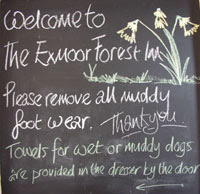 Welcome to
The Exmoor Forest Inn
Please remove all muddy
foot wear. Thankyou.
Towels for wet or muddy dogs
are provided in the dresser by the door